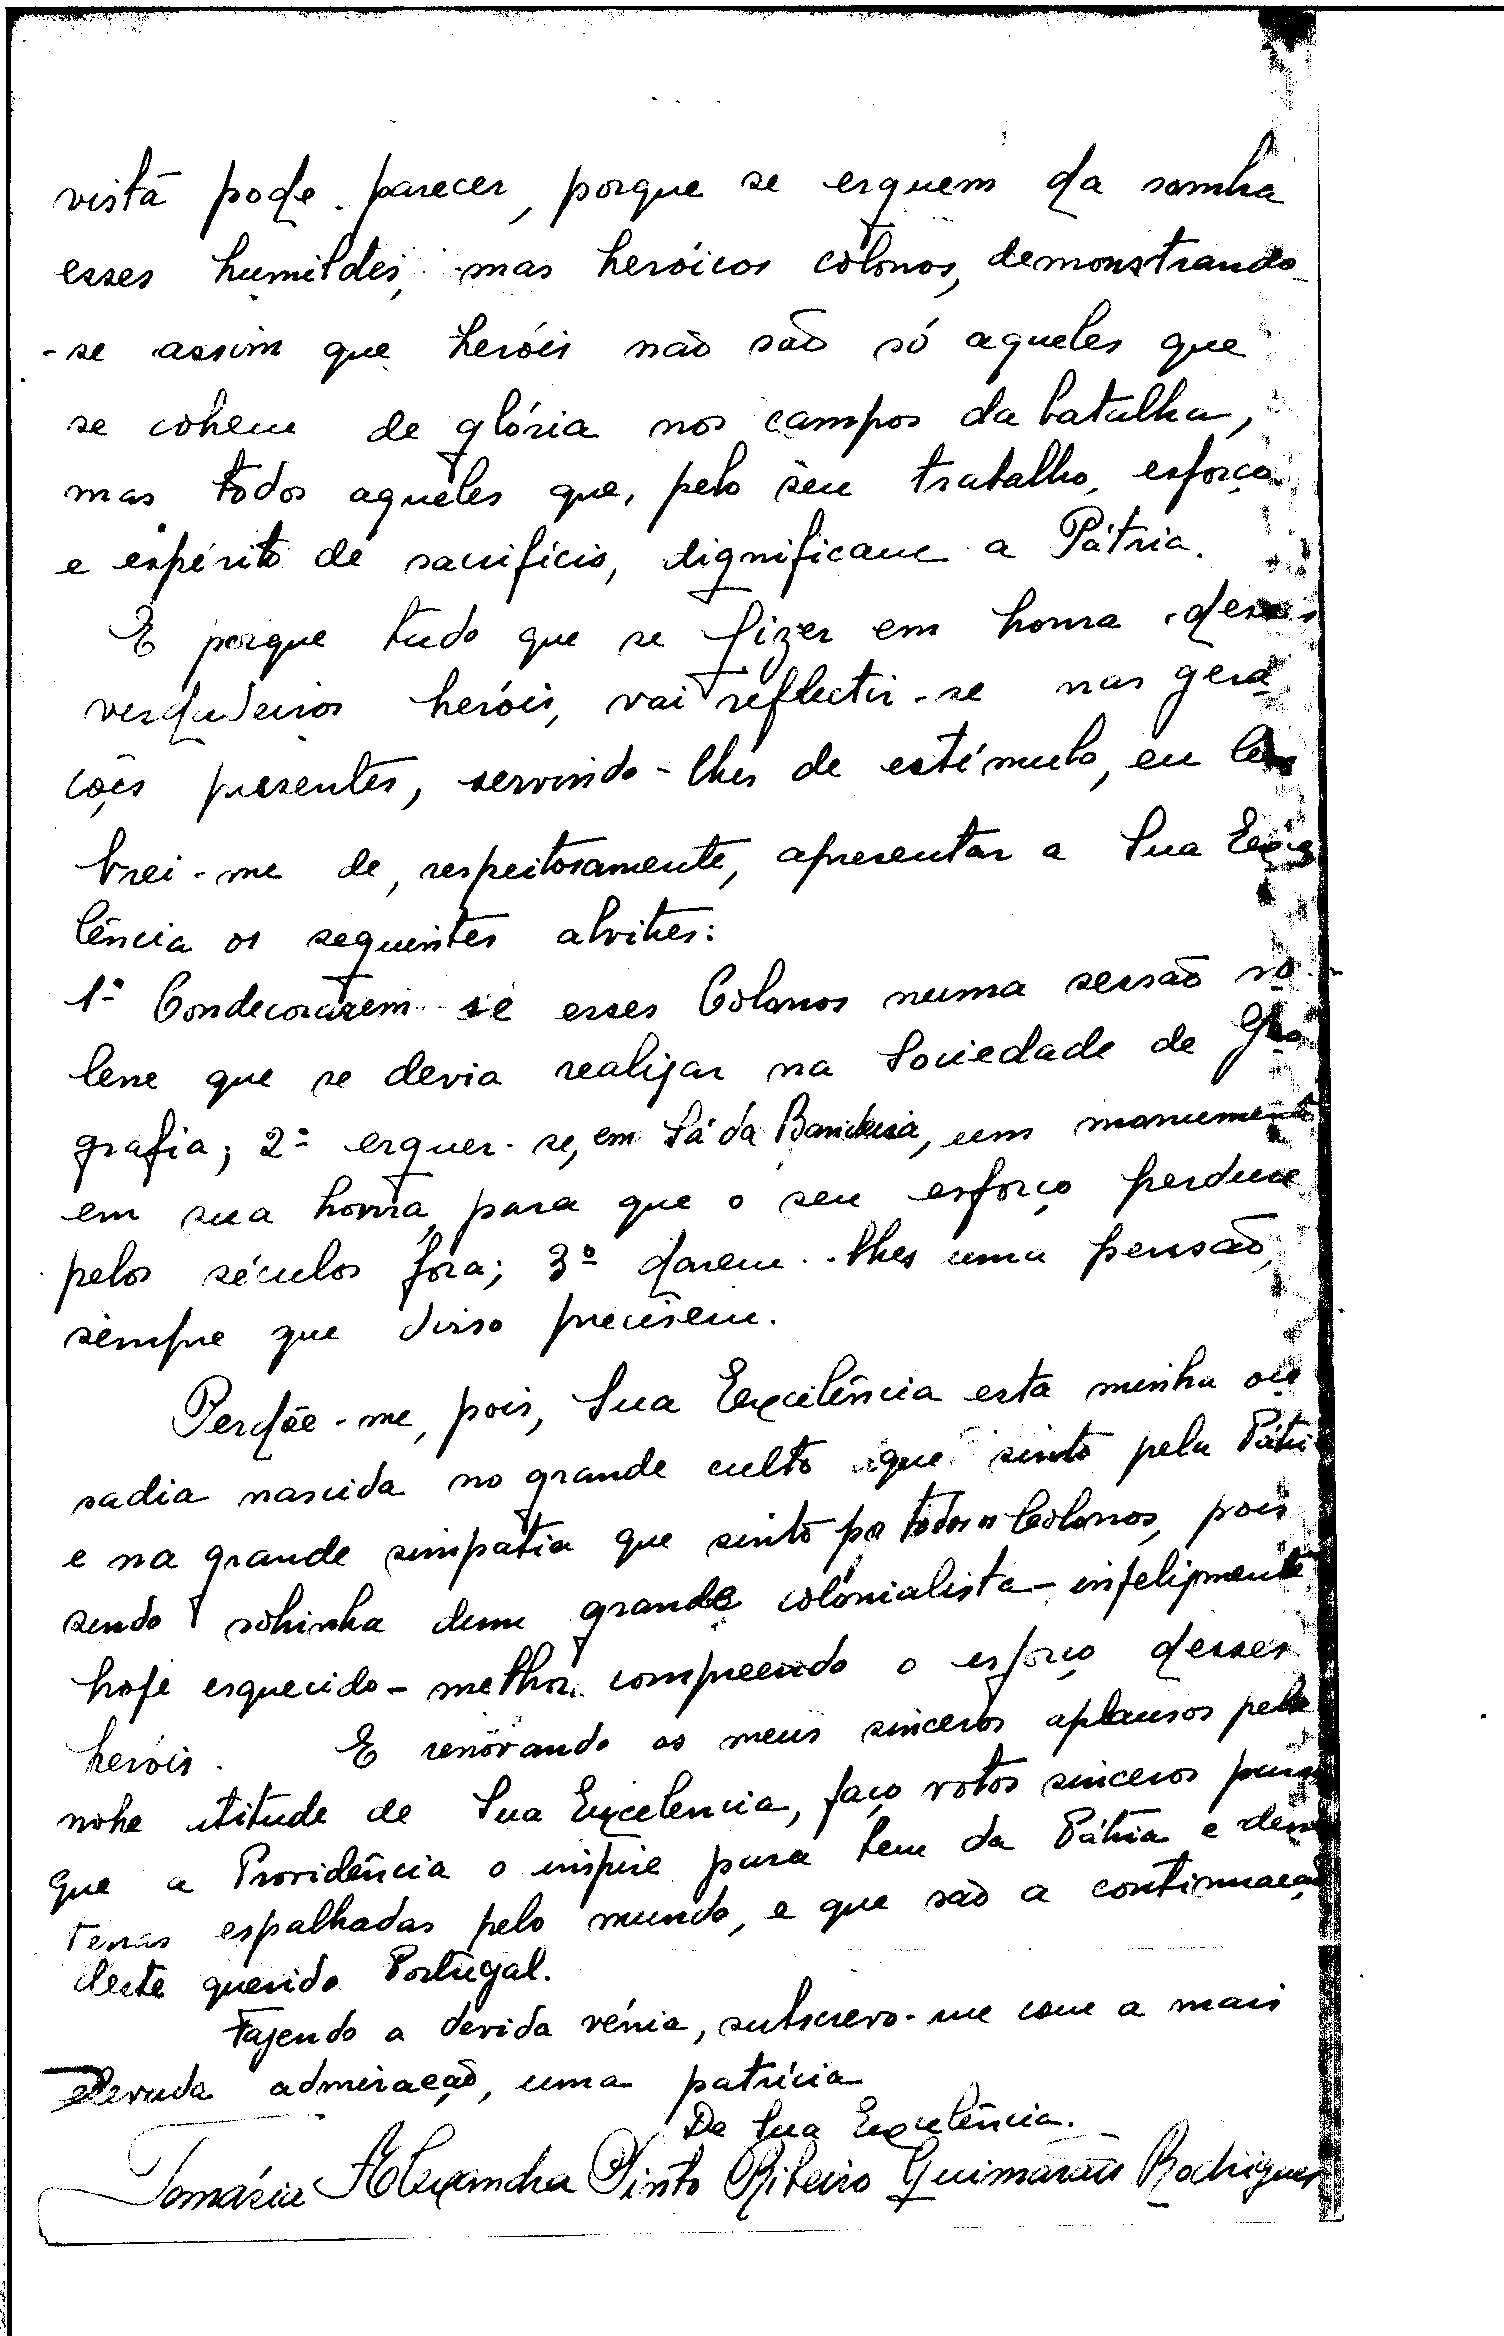 vista pode parecer, porque se erguem da sombra
esses humildes, mas heróicos colonos, demonstrando-
-se assim que heróis não são só aqueles que
se cobrem de glória nos campos da batalha,
mas todos aqueles que, pelo seu trabalho, esforço
e espírito de sacrifício, dignificam a Pátria.
E porque tudo que se fizer em honra desses
verdadeiros heróis, vai reflectir-se nas gera
ções presentes, servindo-lhes de estímulo, eu lem
brei-me de, respeitosamente, apresentar a Sua Exce
lência os seguintes alvitres:
1º Condecorarem-se esses Colonos numa sessão so
lene que se devia realizar na Sociedade de Geo
grafia; 2º erguer-se, em Sá da Bandeira, um monumento
em sua honra, para que o seu esforço perdure
pelos séculos fora; 3º darem-lhes uma pensão,
sempre que disso precisem.
Perdõe-me, pois, Sua Excelência esta minha ou
sadia nascida no grande culto que sinto pela Pátria
e na grande simpatia que sinto por todos os Colonos, pois
sendo sobrinha dum grande colonialista - infelizmente
hoje esquecido - melhor compreendo o esforço desses
heróis. E renovando os meus sinceros aplausos pela
nobre atitude de Sua Excelencia, faço votos sinceros para
que a Providência o inspire para bem da Pátria e dessas
terras espalhadas pelo mundo, e que são a continuação
deste querido Portugal.
Fazendo a devida vénia, subscrevo-me com a mais
elevada admiração, uma patrícia
De Sua Excelência.
Tomásia Alexandra Pinto Ribeiro Guimarães Rodrigues